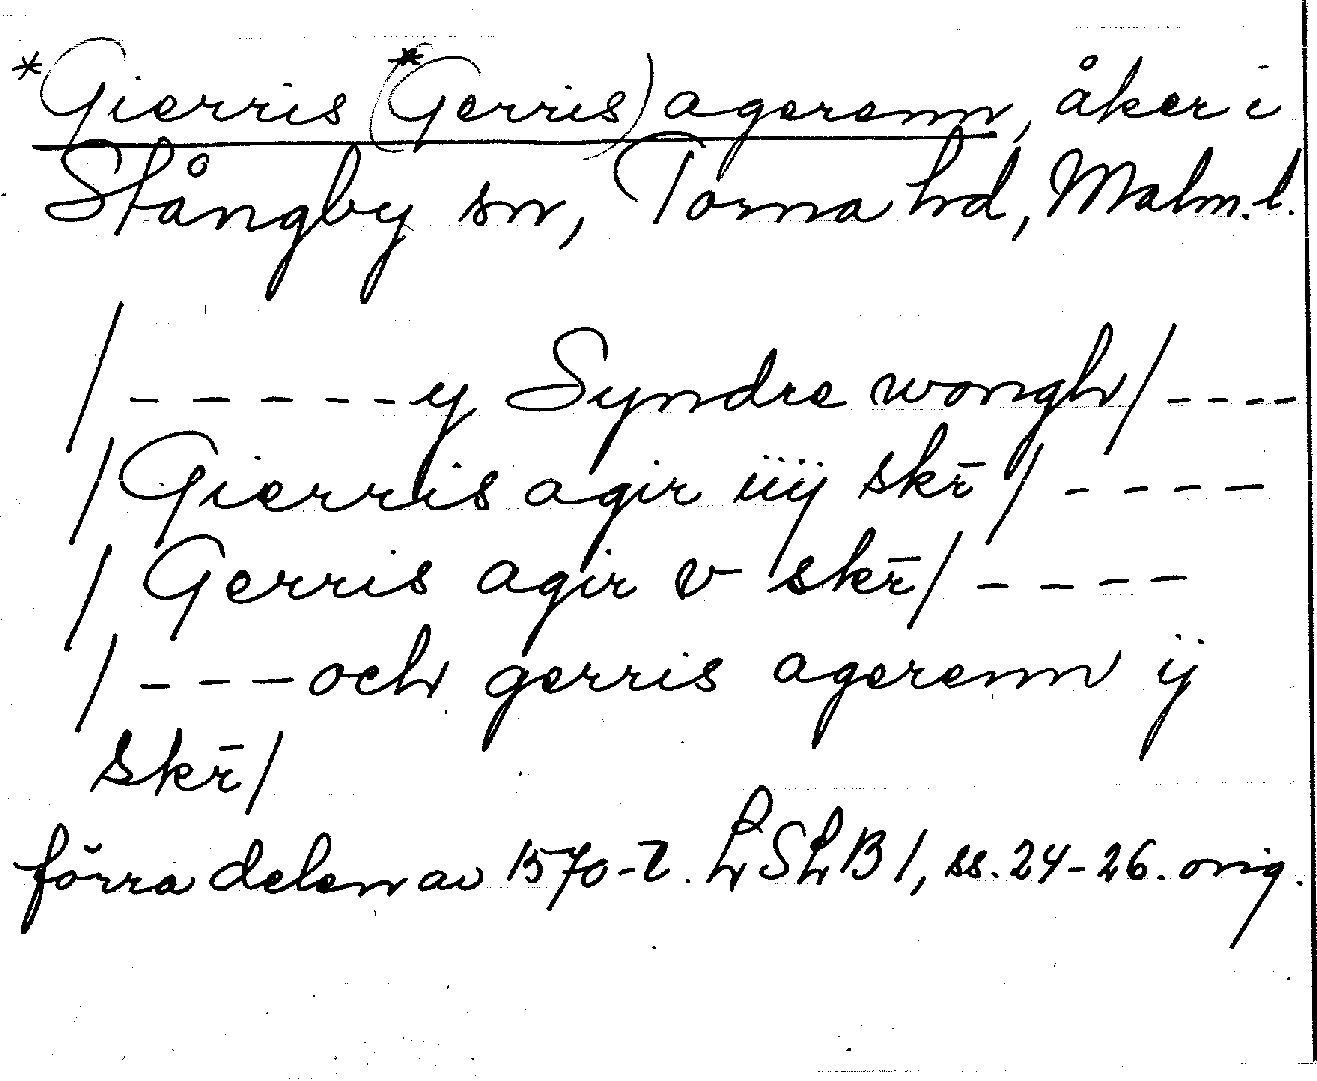 *Gierris (*Gerris) agerenn, åker i
Stångby sn, Torna hd, Malm. l.
/ - - - - - - y Syndre wongh / - - - -
/ Gierris agir iiij skr̄ / - - - -
/ Gerris agir v skr̄ / - - - -
/ - - - och gerris agerenn ij
skr̄ /
förra delen av 1570-t. LSLB 1, ss. 24-26. orig.